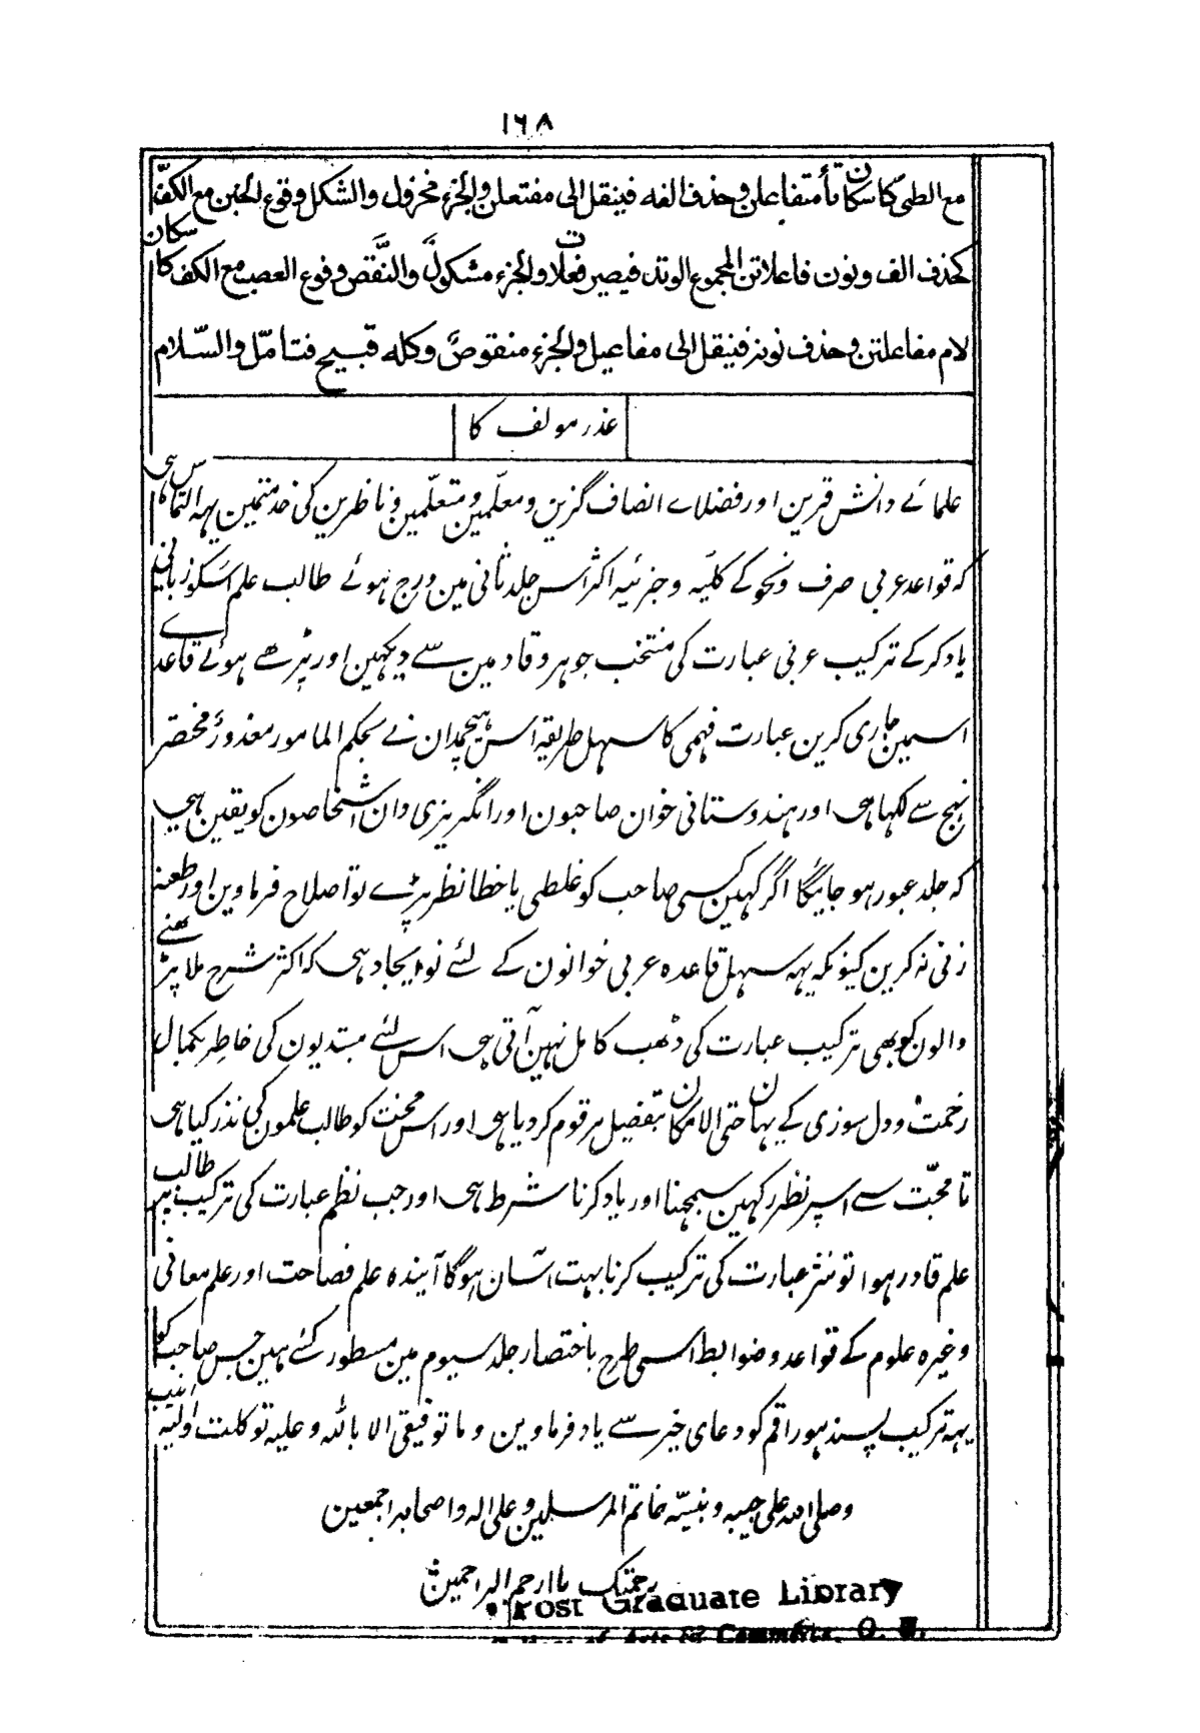 ۱۶۸
مع الطی کاسکان تأ متفاعلن وحذف الفه فینقل الی مفتعلن والجزء مخزول والشکل وقوع الخبن مع الکف
کحذف الف ونون فاعلاتن المجموع الوتد فیصیر فعلات والجزء مشکولٌ والنَّقص وقوع العصب مع الکف کاسکان
لام مفاعلتن وحذف نونه فینقل الی مفاعیل والجزء منقوصٌ وکله قبیح فتأمّل والسّلام
عذر مولف کا
علمائے دانش قرین اور فضلاے انصاف گزین ومعلّمین ومتعلّمین وناظرین کی خدمتمین یہہ التماس ہی
کہ قواعد عربی صرف ونحو کے کلیّہ وجزئیہ اکثر اس جلد ثانی مین درج ہوئے طالب علم اسکو زبانی
یاد کر کے ترکیب عربی عبارت کی منتخب جوہر وقاد مین سے دیکہین اور پڑھے ہوئے قاعدے
اسمین جاری کرین عبارت فہمی کا سہل طریقہ اس ہیچمدان نے بحکم المامور معذورٌ مختصر
نہج سے لکہا ہی اور ہندوستانی خوان صاحبون اور انگریزی دان اشخاصون کو یقین ہی
کہ جلد عبور ہو جائیگا اگر کہین کسی صاحب کو غلطی یا خطا نظر پڑے تو اصلاح فرماوین اور طعنہ
زنی نہ کرین کیونکہ یہہ سہل قاعدہ عربی خوانون کے لئے نو ایجاد ہی کہ اکثر شرح ملا پڑھنے
والون کو بھی ترکیب عبارت کی ڈھب کامل نہین آتی ہی اس لئے مبتدیون کی خاطر بکمال
زحمت ودل سوزی کے یہان حتی الامکان بتفصیل مرقوم کر دیا ہی اور اس محنت کو طالب علمون کی نذر کیا ہی
تا محبّت سے اسپر نظر رکہین سمجہنا اور یاد کرنا شرط ہی اور جب نظم عبارت کی ترکیب پر طالب
علم قادر ہوا تو نثر عبارت کی ترکیب کرنا بہت آسان ہوگا آیندہ علم فصاحت اور علم معانی
وغیرہ علوم کے قواعد وضوابط اسی طرح باختصار جلد سیوم مین مسطور کئے ہین جس صاحب کو
یہہ ترکیب پسند ہو راقم کو دعای خیر سے یاد فرماوین وما توفیقی الا باللّٰہ وعلیہ توکلت والیہ انیب
وصلی اللہ علی حبیبہ ونبیّہ خاتم المرسلین وعلی الہ واصحابہ اجمعین
برحمتک یا ارحم الراحمین
Post Graduate Library
College of Arts & Commerce, O. U.